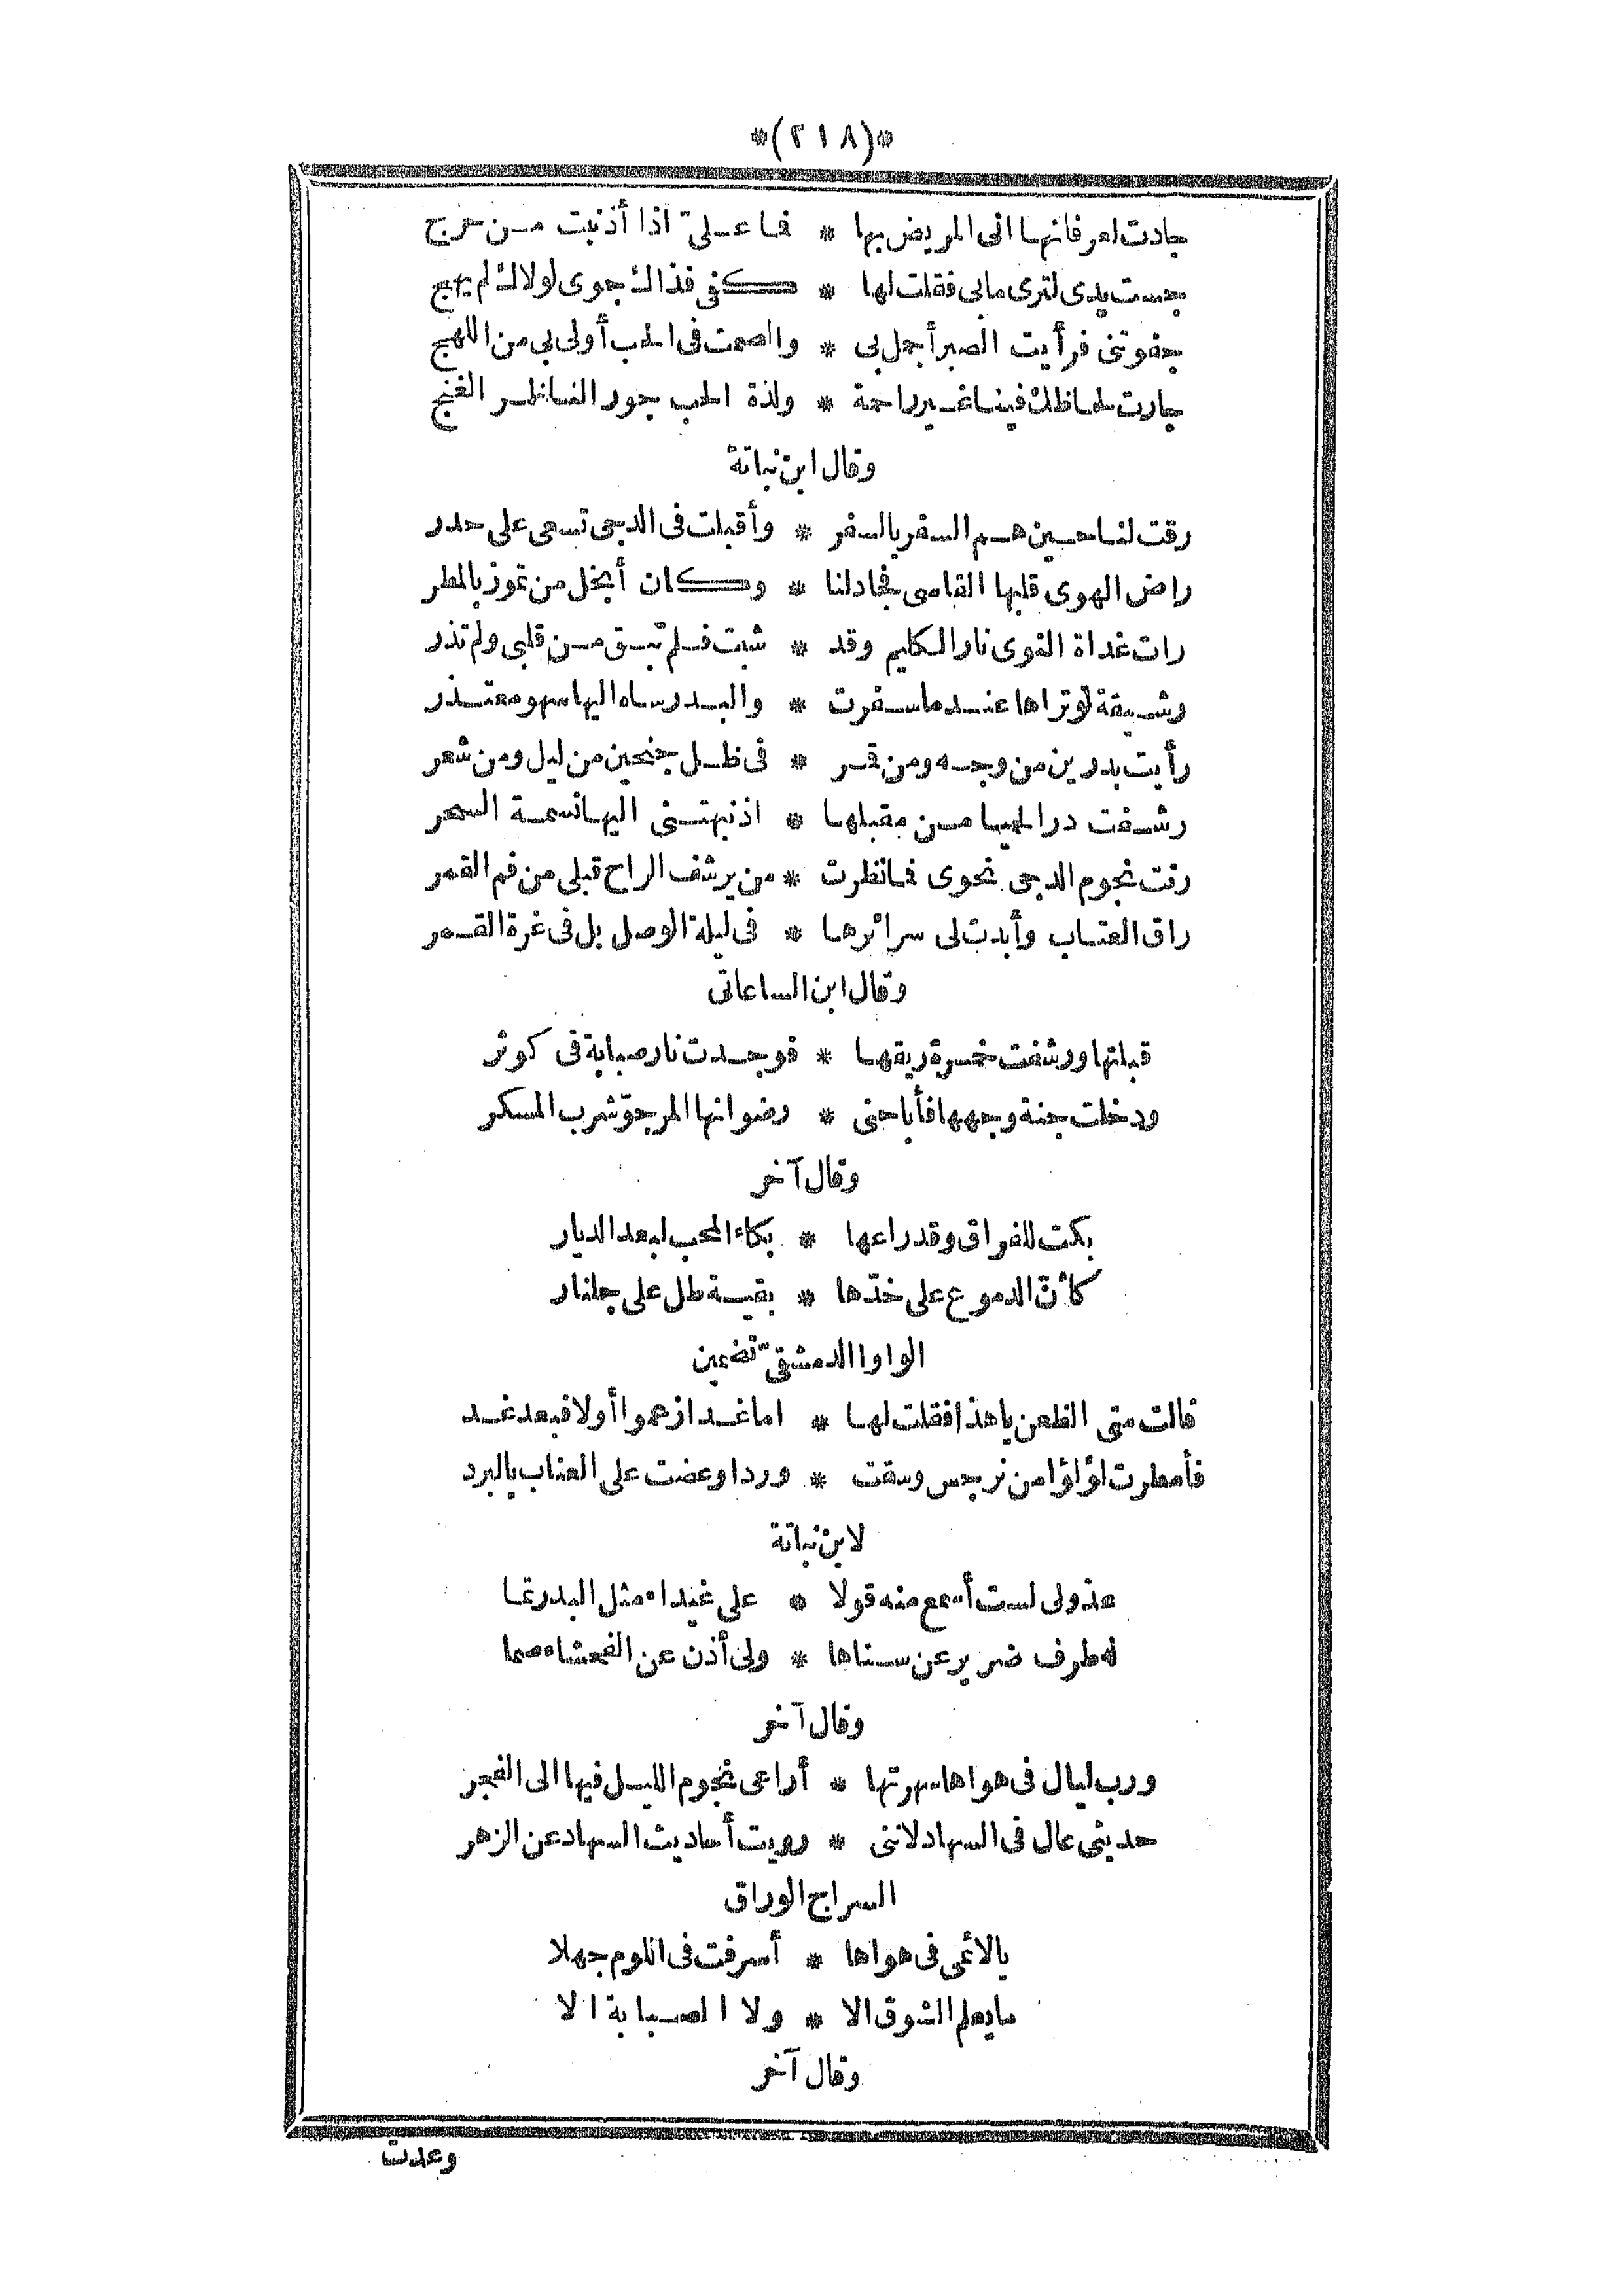 *(٢١٨)*
جادت لعرفانها انى المريض بها * فما عـلىّ اذا أذنبت مـن حرج
جست يدى لترى مابى فقلت لها * كفى فذاك جوى لولاك لم يهج
جفوتنى فرأيت الصبر أجمل بى * والصمت فى الحب أولى بى من اللهج
جارت لحاظك فينا غير راحمة * ولذة الحب جور الناظر الغنج
وقال ابن نباتة
رقت لنا حين هم السفر بالسفر * وأقبلت فى الدجى تسعى على حذر
راض الهوى قلبها القاسى فجادلنا * وكان أبخل من تموز بالمطر
رات غداة النوى نار الكليم وقد * شبت فلم تبق من قلبى ولم تذر
وشيقة لو تراها عند ما سفرت * والبدر ساه اليها سهو معتذر
رأيت بدرين من وجه ومن قمر * فى ظل جنحين من ليل ومن شعر
رشفت در الحيا من مقبلها * اذ نبهتنى اليها نسمة السحر
رنت نجوم الدجى نحوى فما نظرت * من يرشف الراح قبلى من فم القمر
راق العتاب وأبدت لى سرائرها * فى ليلة الوصل بل فى غرة القمر
وقال ابن الساعاتى
قبلتها ورشفت خمرة ريقها * فوجدت نار صبابة فى كوثر
ودخلت جنة وجهها فأباحنى * رضوانها المرجوّ شرب المسكر
وقال آخر
بكت للفراق وقد راعها * بكاء المحب لبعد الديار
كأنّ الدموع على خدّها * بقية طل على جلنار
الواوا الدمشقىّ تضمين
قالت متى الظعن ياهذا فقلت لها * اما غدا زعموا أولا فبعد غد
فأمطرت لؤلؤا من نرجس وسقت * وردا وعضت على العناب بالبرد
لابن نباتة
عذولى لست أسمع منه قولا * على غيداء مثل البدر تما
له طرف ضرير عن سناها * ولى أذن عن الفحشاء صما
وقال آخر
ورب ليال فى هواها سهرتها * أراعى نجوم الليل فيها الى الفجر
حديثى عال فى السهاد لاننى * رويت أحاديث السهاد عن الزهر
السراج الوراق
يالائمى فى هواها * أسرفت فى اللوم جهلا
مايعلم الشوق الا * ولا الصبابة الا
وقال آخر
وعدت